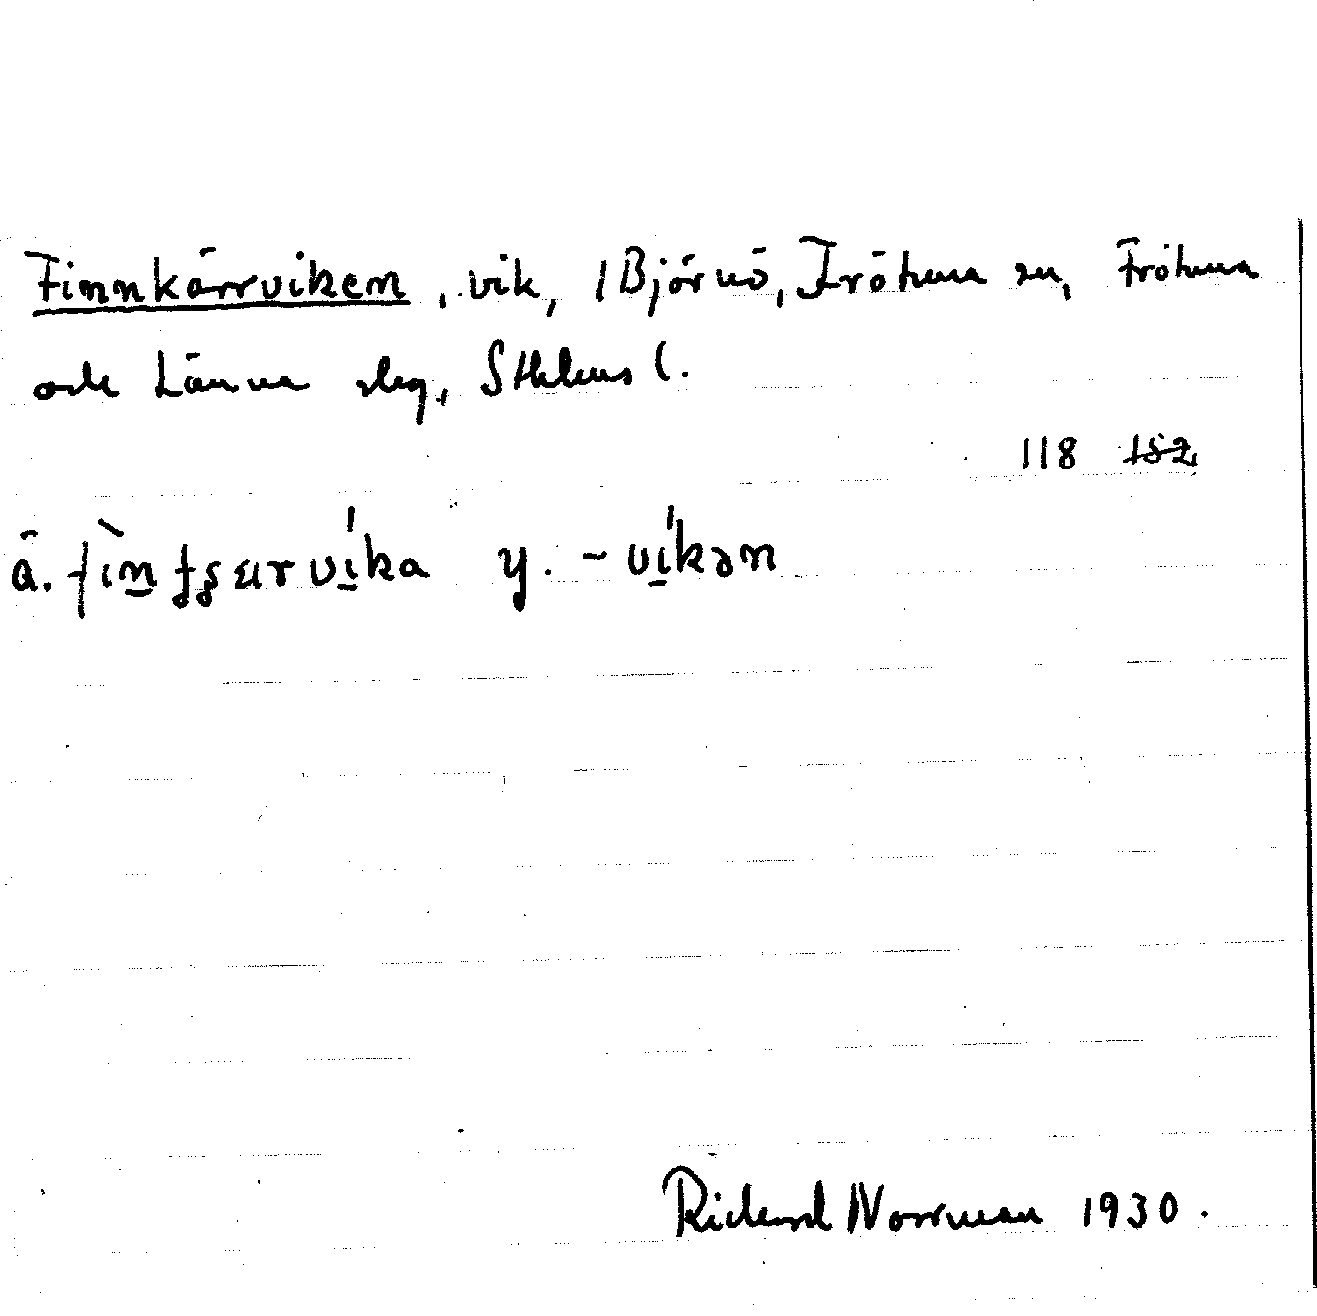 Finnkärrviken, vik, 1 Björnö, Frötuna sn, Frötuna
och Länna skg, Sthlms l.
118 152
ä. fìnfʂɛrvíka y. -víkən
Richard Norrman 1930.